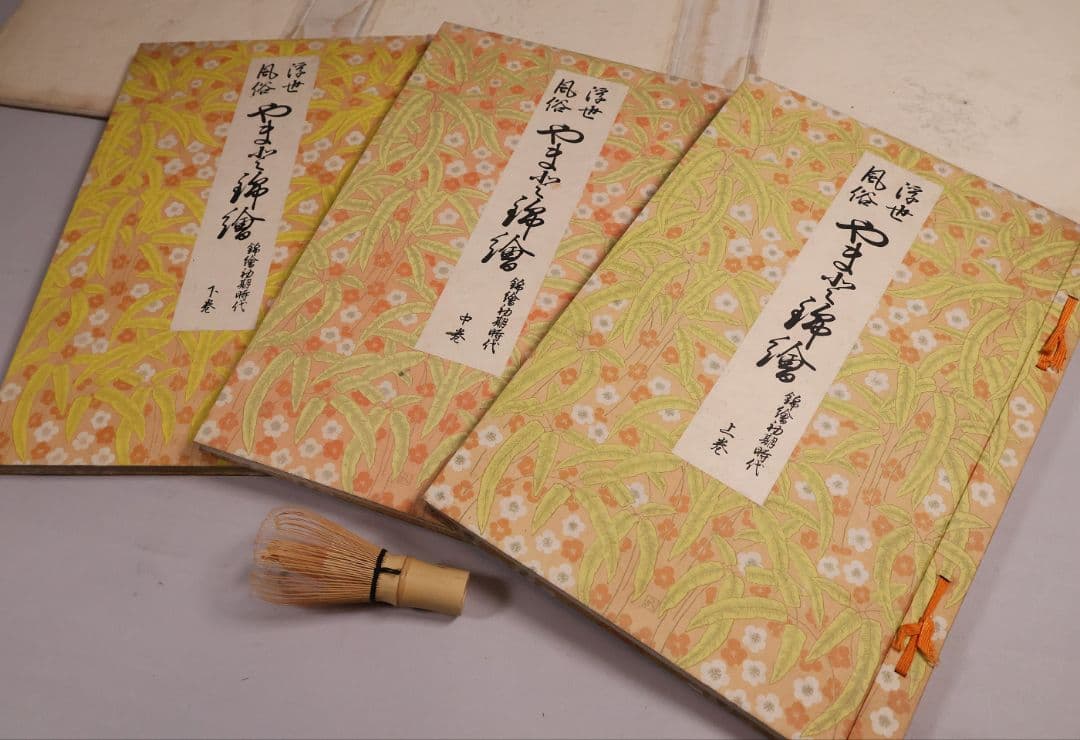 浮世
風俗
やまと錦繪
錦繪初期時代
上巻
浮世
風俗
やまと錦繪
錦繪初期時代
中巻
浮世
風俗
やまと錦繪
錦繪初期時代
下巻